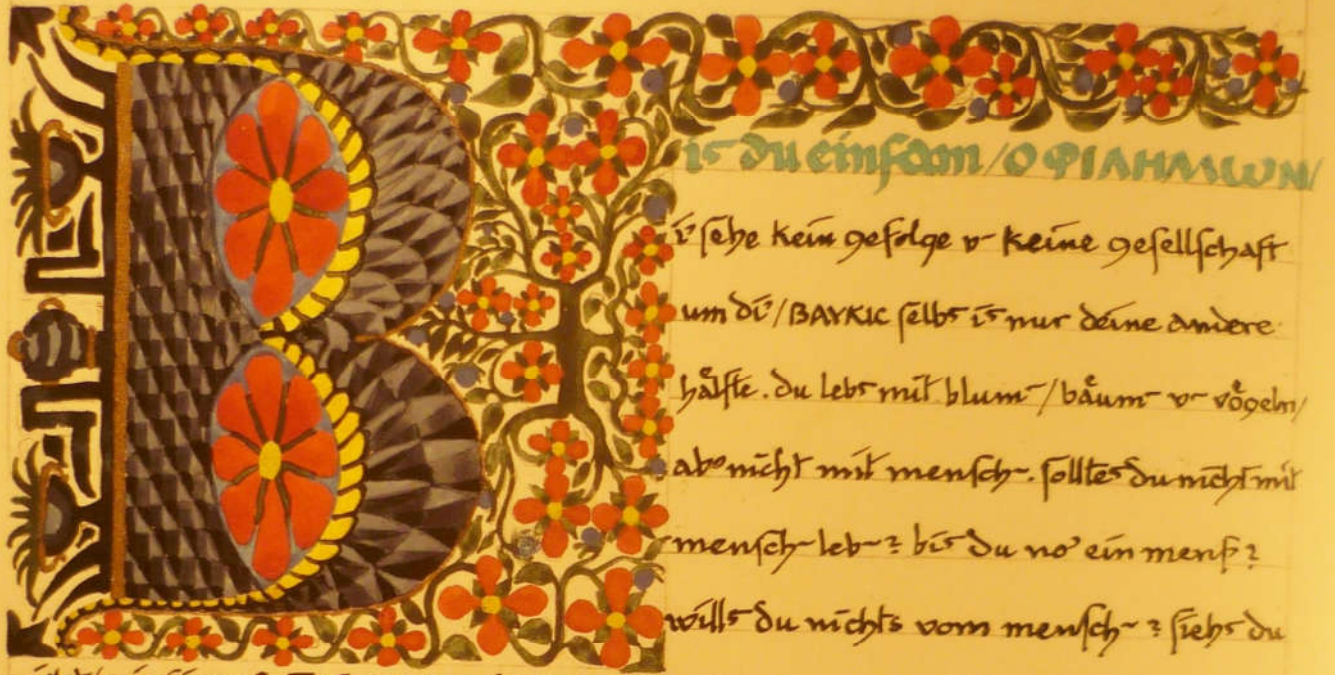 Bis du einsam / Ο ΦΙΛΗΜΩΝ /
i' sehe kein gefolge v- keine gesellschaft
um di' / ΒΑΥΚΙC selbs is nur deine andere
hälfte. du lebs mit blum- / bäum- v- vögeln /
ab' nicht mit mensch-. solltes du nicht mit
mensch- leb-? bis du no' ein mensch?
wills du nichts vom mensch-? siehs du